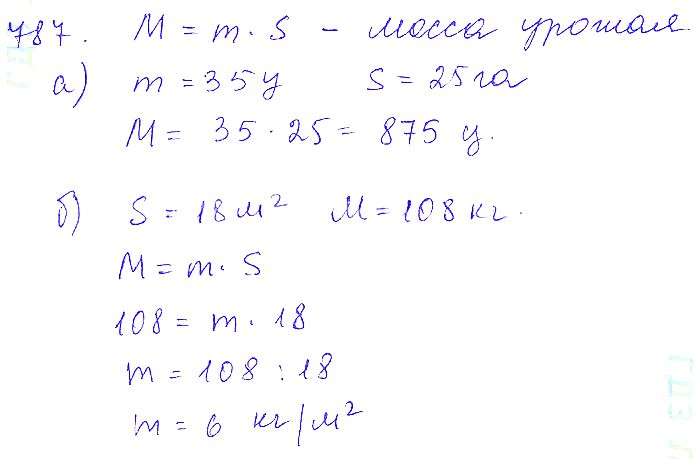 787. M = m · S – масса урожая
а) m = 35 ц S = 25 га
M = 35 · 25 = 875 ц.
б) S = 18 м² M = 108 кг.
M = m · S
108 = m · 18
m = 108 : 18
m = 6 кг/м²
ГДЗ